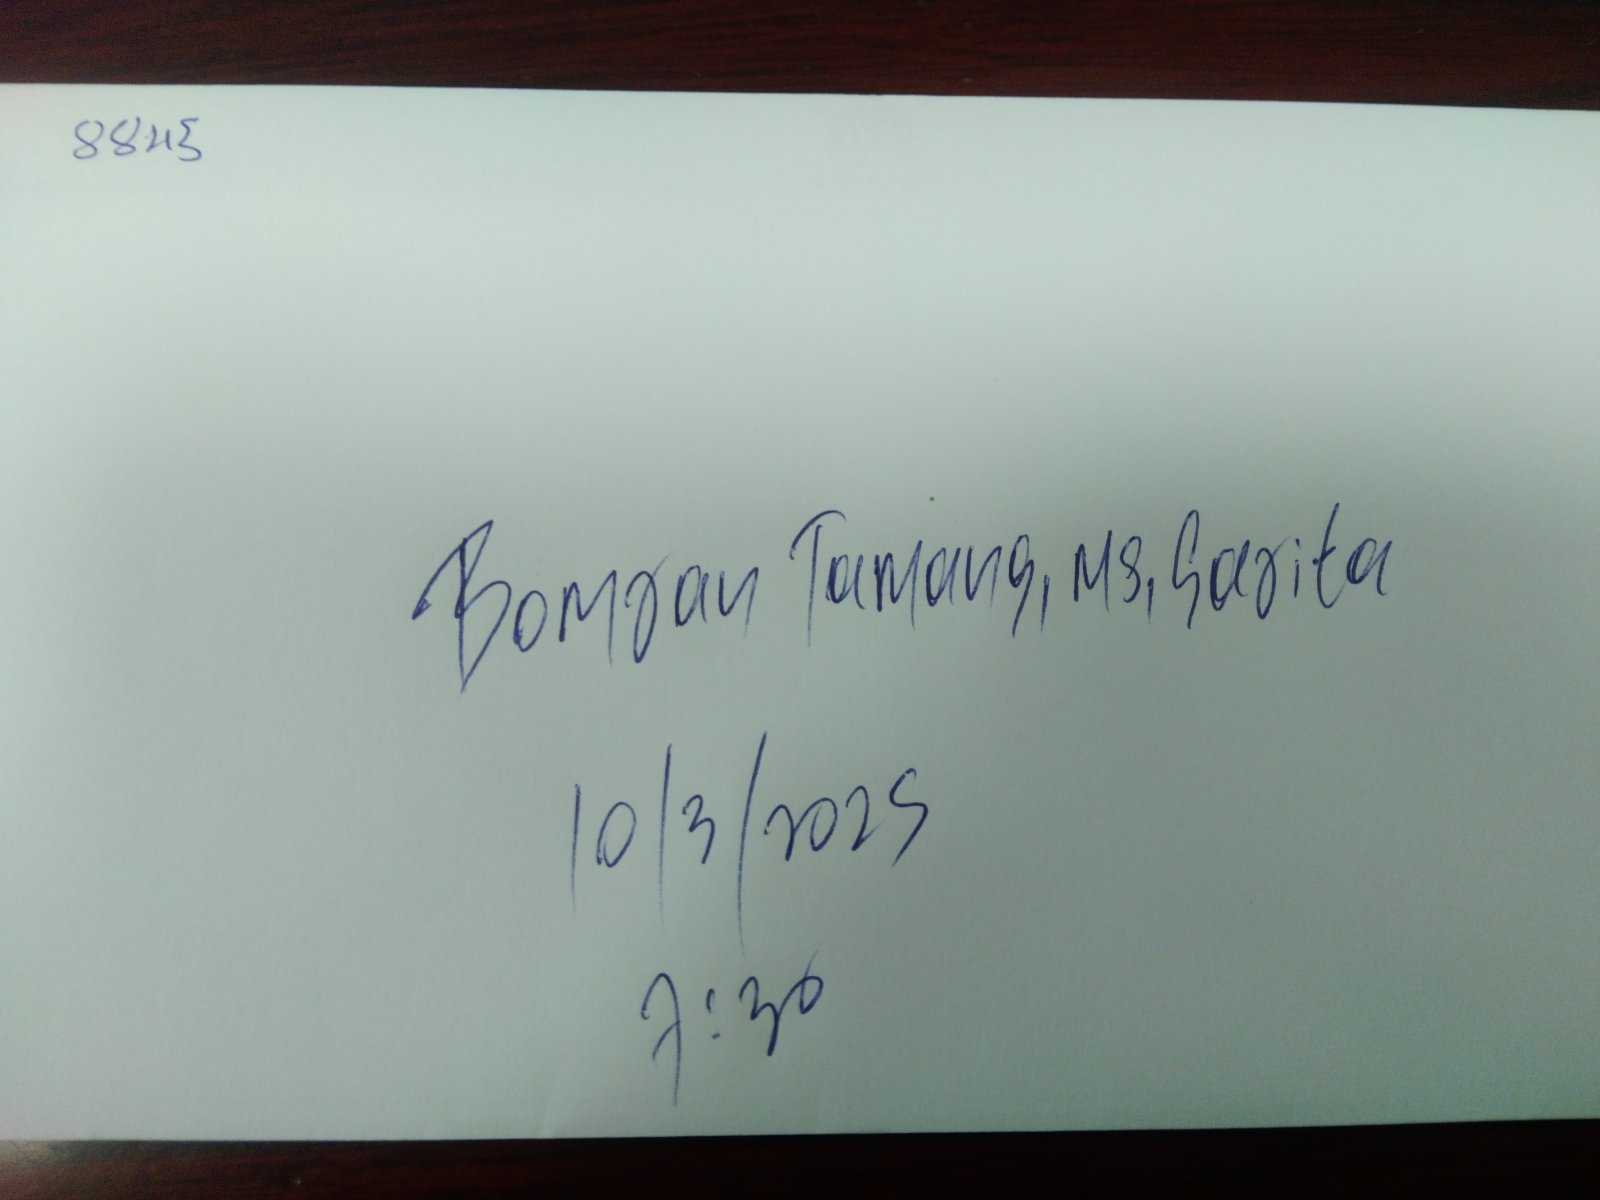 8845
Bomjan Tamang, Ms, Sarita
10/3/2025
7:30